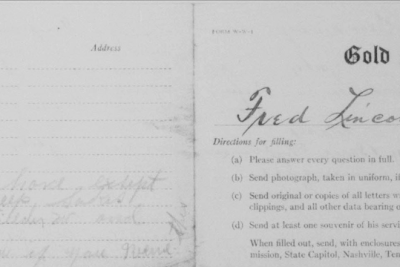 Address
Gold
Fred Lincol
Directions for filling:
(a) Please answer every question in full.
(b) Send photograph, taken in uniform, if
(c) Send original or copies of all letters w
clippings, and all other data bearing o
(d) Send at least one souvenir of his servi
When filled out, send, with enclosures
mission, State Capitol, Nashville, Ten
hard except
and
of your friend